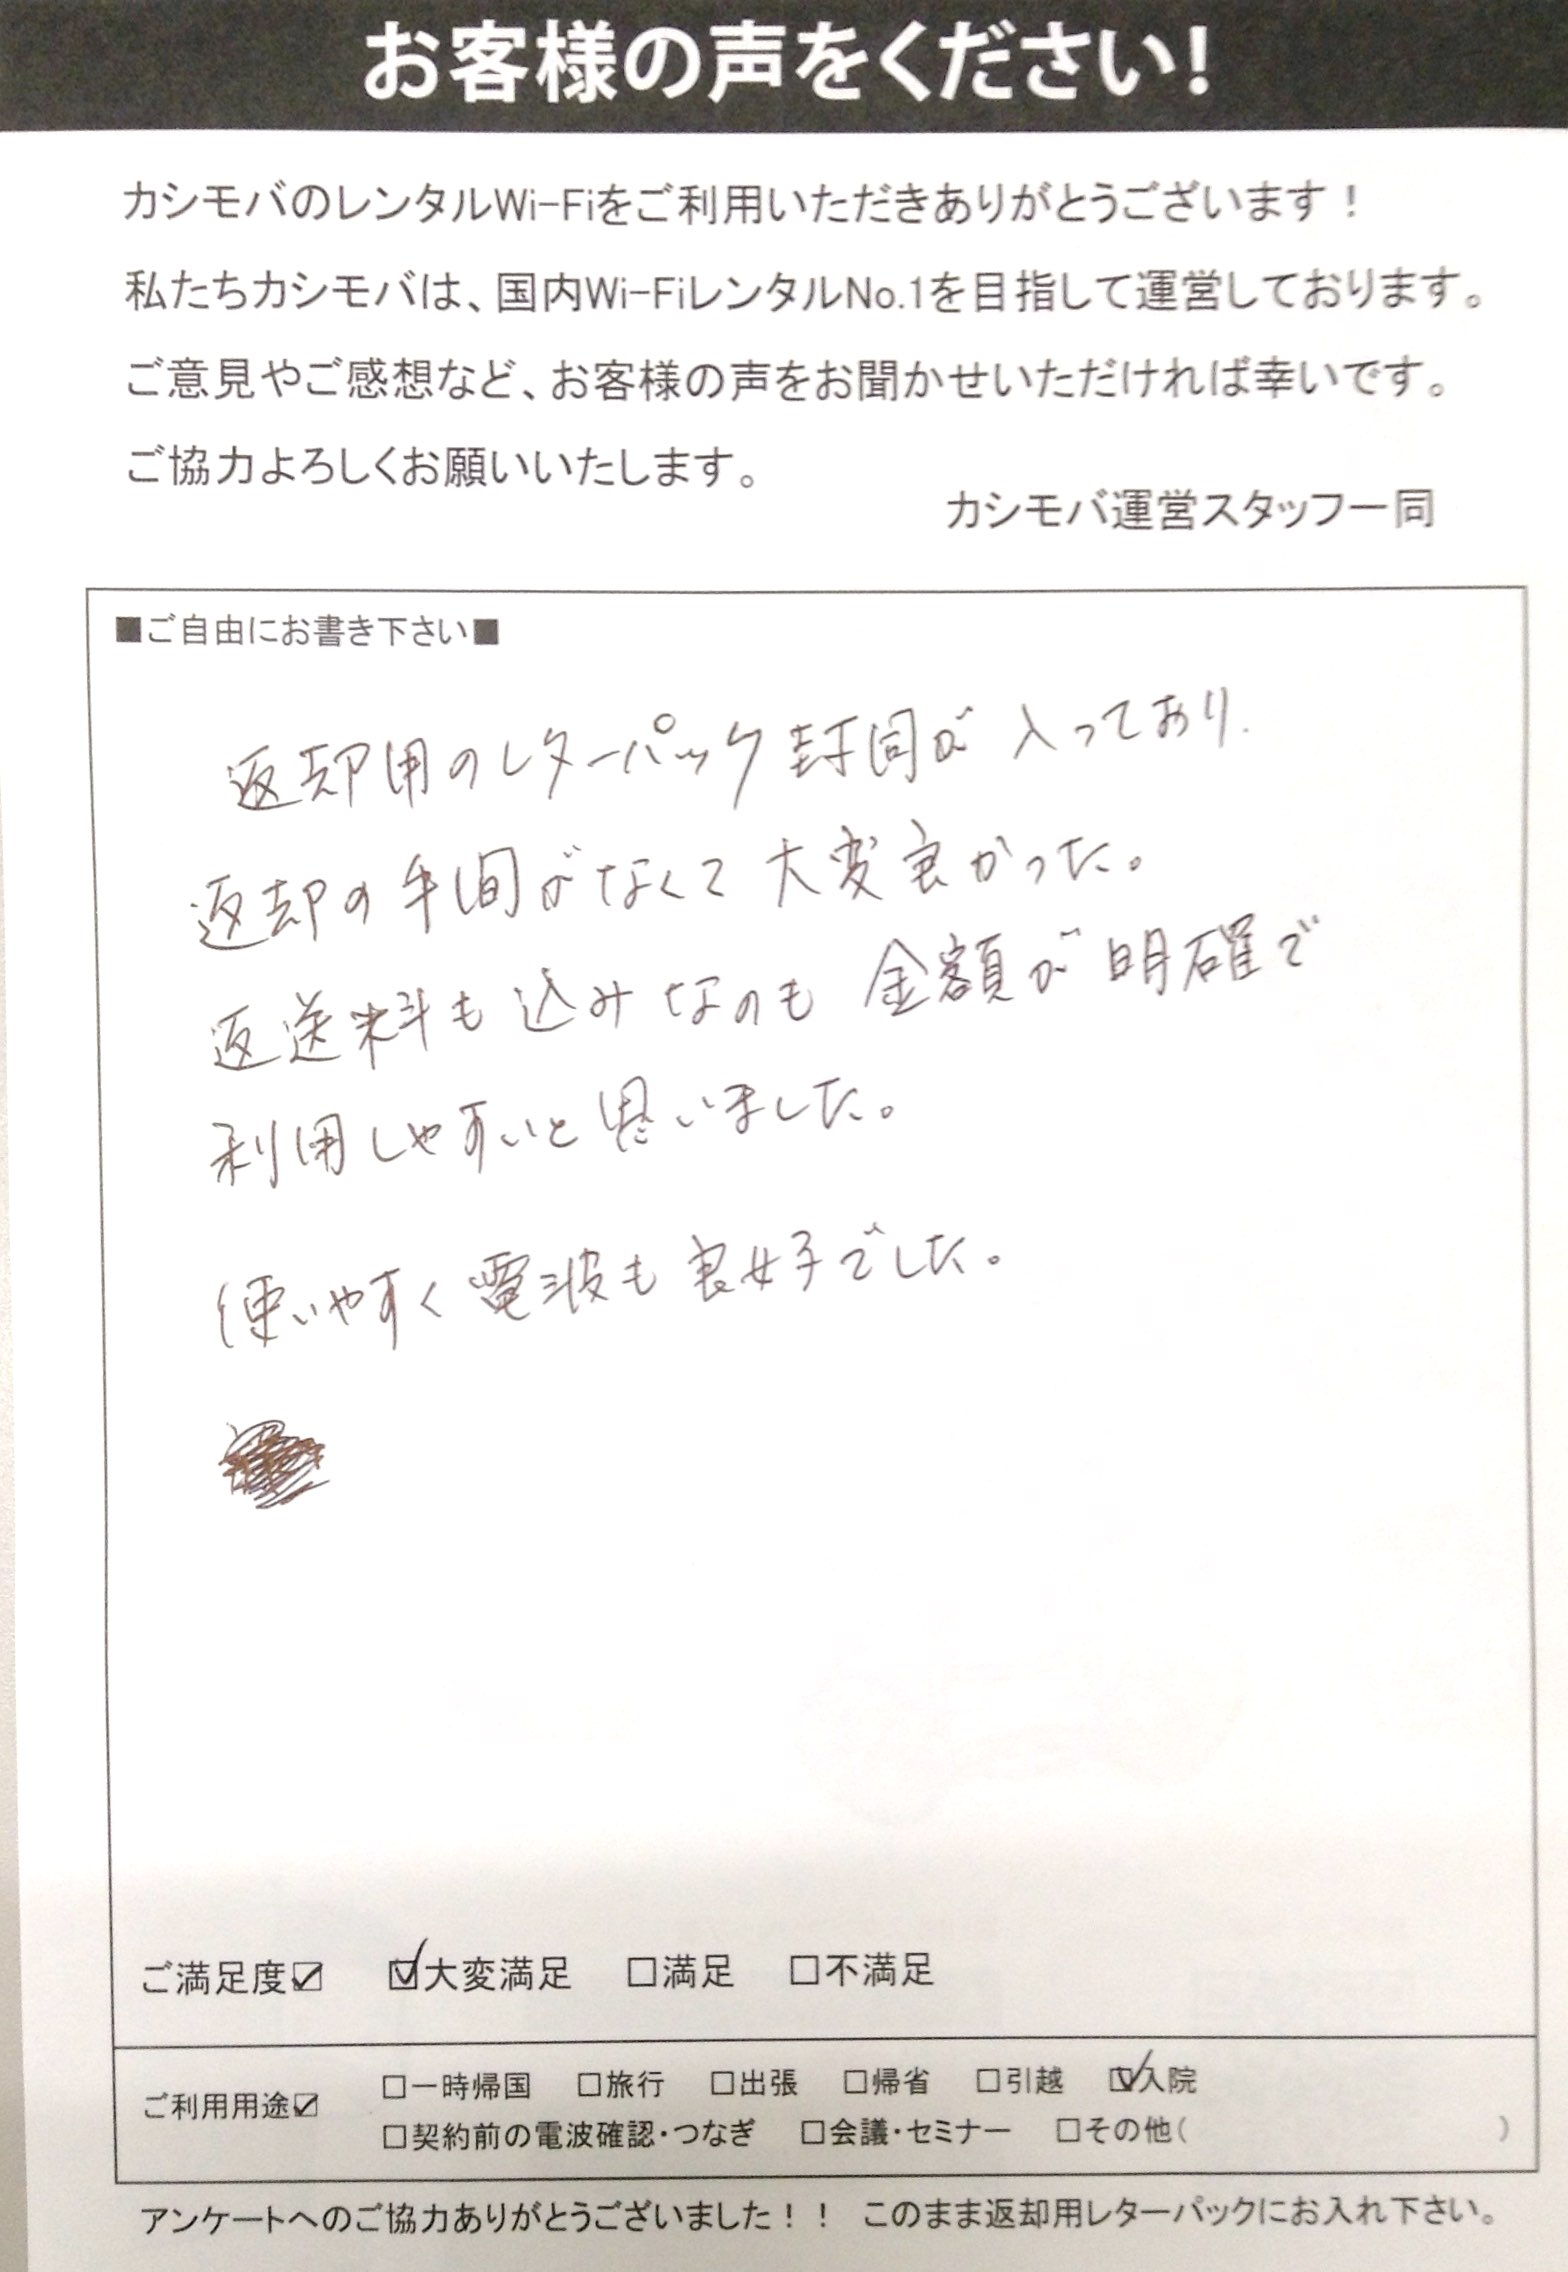 お客様の声をください!
カシモバのレンタルWi-Fiをご利用いただきありがとうございます！
私たちカシモバは、国内Wi-FiレンタルNo.1を目指して運営しております。
ご意見やご感想など、お客様の声をお聞かせいただければ幸いです。
ご協力よろしくお願いいたします。
カシモバ運営スタッフ一同
■ご自由にお書き下さい■
返却用のレターパック封筒が入っており、
返却の手間がなくて大変良かった。
返送料も込みなのも金額が明確で
利用しやすいと思いました。
使いやすく電波も良好でした。
ご満足度☑ ☑大変満足 □満足 □不満足
ご利用用途☑ □一時帰国 □旅行 □出張 □帰省 □引越 ☑入院
□契約前の電波確認・つなぎ □会議・セミナー □その他( )
アンケートへのご協力ありがとうございました！！ このまま返却用レターパックにお入れ下さい。